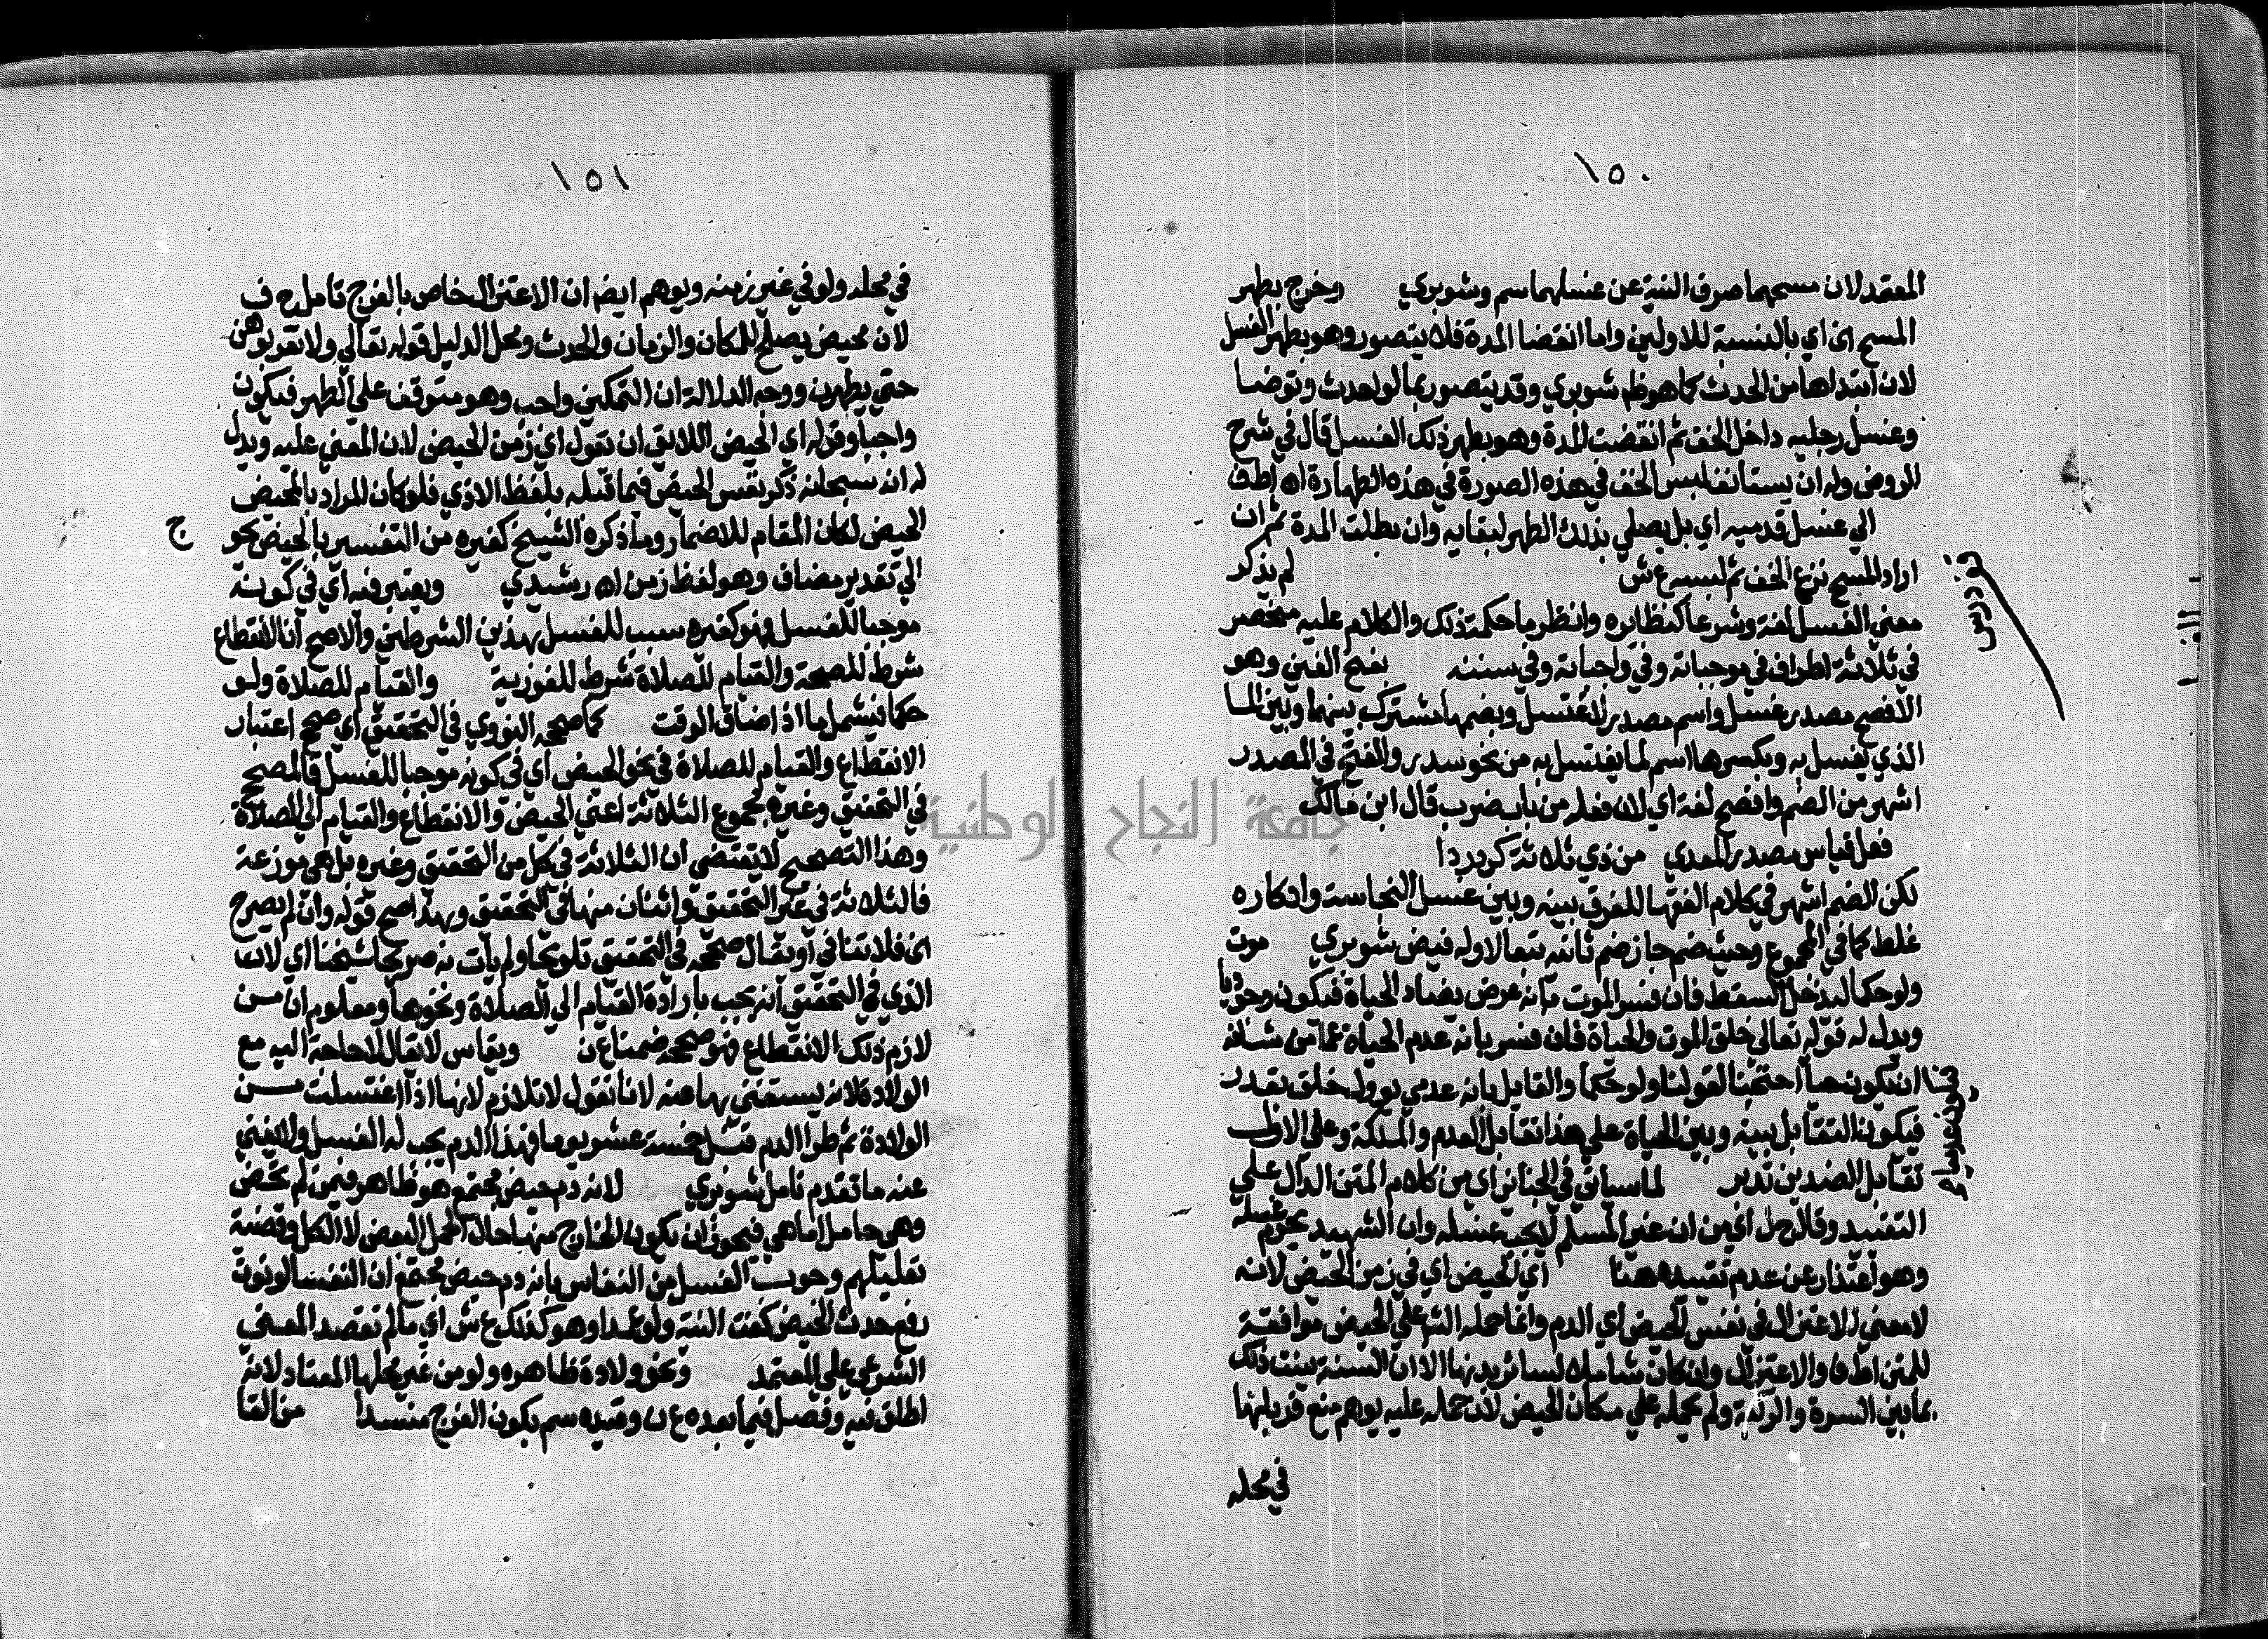 ١٥٠
المعتمد لان مسحهما صرف النية عن غسلهما سم وشوبري وخرج بطهر
المسح اي اي بالنسبة للاولين واما انقضا المدة فلا يتصور وهو بطهر الغسل
لان ابتداها من الحدث كما هو ظم شوبري وقد يتصور بما لو احدث وتوضا
وغسل رجليه داخل الخف ثم انقضت المدة وهو بطهر ذلك الغسل قال في شرح
الروض وله ان يستانف لبس الخف في هذه الصورة في هذه الطهارة اه اطف
الي غسل قدميه اي بل يصلي بذلك الطهر لبقايه وان بطلت المدة ثم ان
اراد المسح نزع الخف ثم لبسه ع ش لم يذكر
معني الغسل لغة وشرعا كنظايره وانظر ما حكمة ذلك والكلام عليه منحصر
في ثلاثة اطراف في موجباته وفي واجباته وفي سننه بفتح الغين وهو
الافصح مصدر غسل واسم مصدر لاغتسل وبضمها مشترك بينهما وبين الما
الذي يغسل به وبكسرها اسم لما يغتسل به من نحو سدر والفتح في المصدر
اشهر من الضم وافصح لغة اي لان فعله من باب ضرب قال ابن مالك
فعل قياس مصدر المعدي من ذي ثلاثة كرد ردا
لكن الضم اشهر في كلام الفقها للفرق بينه وبين غسل النجاسة وانكاره
غلط كما في المجموع وحيث ضم جاز ضم ثانيه تبعا لاوله فيض شوبري موت
ولو حكما ليدخل السقط فان فسر الموت بانه عرض يضاد الحياة فيكون وجوديا
ويدل له قوله تعالى خلق الموت والحياة فان فسر بانه عدم الحياة عما من شانه
ان تكون بها احتجنا لقولنا ولو حكما والقايل بانه عدمي يوول خلق بقدر
فيكون التقابل بينه وبين الحياة علي هذا تقابل العدم والملكة وعلي الاول
تقابل الضدين تدبر لما سياتي في الجنايز اي من كلام المتن الدال علي
التقييد وقال حل اي من ان غير المسلم لا يجب غسله وان الشهيد يحرم غسله
وهو اعتذار عن عدم تقييده هنا اي الحيض اي في زمن الحيض لانه
لا معني للاعتزال في نفس الحيض اي الدم وانما حمله الش علي الحيض موافقة
للمتن اطف والاعتزال وان كان شاملا لسائر بدنها الا ان السنة بينت ذلك
بما بين السرة والركبة ولم يحمله علي مكان الحيض لان حمله عليه يوهم منع قربانها
في محله
١٥١
في محله ولو في غير زمنه ويوهم ايضا ان الاعتزال خاص بالفرج تامل ح ف
لان محيض يصلح للمكان والزمان والحدث ومحل الدليل قوله تعالي ولا تقربوهن
حتي يطهرن ووجه الدلالة ان التمكين واجب وهو متوقف علي الطهر فيكون
واجبا وقوله اي الحيض اللائق ان تقول اي زمن الحيض لان المعني عليه ويدل
له انه سبحانه ذكر نفس الحيض فيما قبله بلفظ الاذي فلو كان المراد بالمحيض
الحيض لكان المقام للاضمار وما ذكره الشيخ كغيره من التفسير بالحيض يحوج
الي تقدير مضاف وهو لفظ زمن اه رشيدي ويعتبر فيه اي في كونه
موجبا للغسل فهو كغيره سبب للغسل بهذين الشرطين والاصح ان الانقطاع
شرط للصحة والقيام للصلاة شرط للفورية والقيام للصلاة ولو
حكما فيشمل ما اذا ضاق الوقت كما صححه النووي في التحقيق اي صحح اعتبار
الانقطاع والقيام للصلاة في نحو الحيض اي في كونه موجبا للغسل فالمصحح
في التحقيق وغيره مجموع الثلاثة اعني الحيض والانقطاع والقيام الي الصلاة
وهذا التصحيح لا يقتضي ان الثلاثة في كل من التحقيق وغيره بل هي موزعة
فالثلاثة في غير التحقيق واثنان منها في التحقيق وبهذا صح قوله وان لم يصرح
اي فلا تنافي او يقال صححه في التحقيق تلويحا ولم يات به صريحا شيخنا اي لان
الذي في التحقيق انه يجب بارادة القيام الي الصلاة ونحوها ومعلوم ان من
لازم ذلك الانقطاع فهو صححه ضمنا ع ن ونفاس لا يقال لا حاجة اليه مع
الولادة لانه يستغني بها عنه لانا نقول لا تلازم لانها اذا اغتسلت من
الولادة ثم طرا الدم قبل خمسة عشر يوما فهذا الدم يجب له الغسل ولا يغني
عنه ما تقدم تامل شوبري لانه دم حيض مجتمع هو ظاهر فيمن لم تحض
وهي حامل اما هي فيجوز ان يكون الخارج منها حال الحمل البعض لا الكل وقضية
تعليلهم وجوب الغسل من النفاس بانه دم حيض مجتمع ان النفسا لو نوت
رفع حدث الحيض كفت النية ولو عمدا وهو كذلك ع ش اي ما لم تقصد المعني
الشرعي علي المعتمد ونحو ولادة ظاهره ولو من غير محلها المعتاد لانه
اطلق فيه وفصل فيما بعده ع ن وقيده سم بكون الفرج منسدا من القا